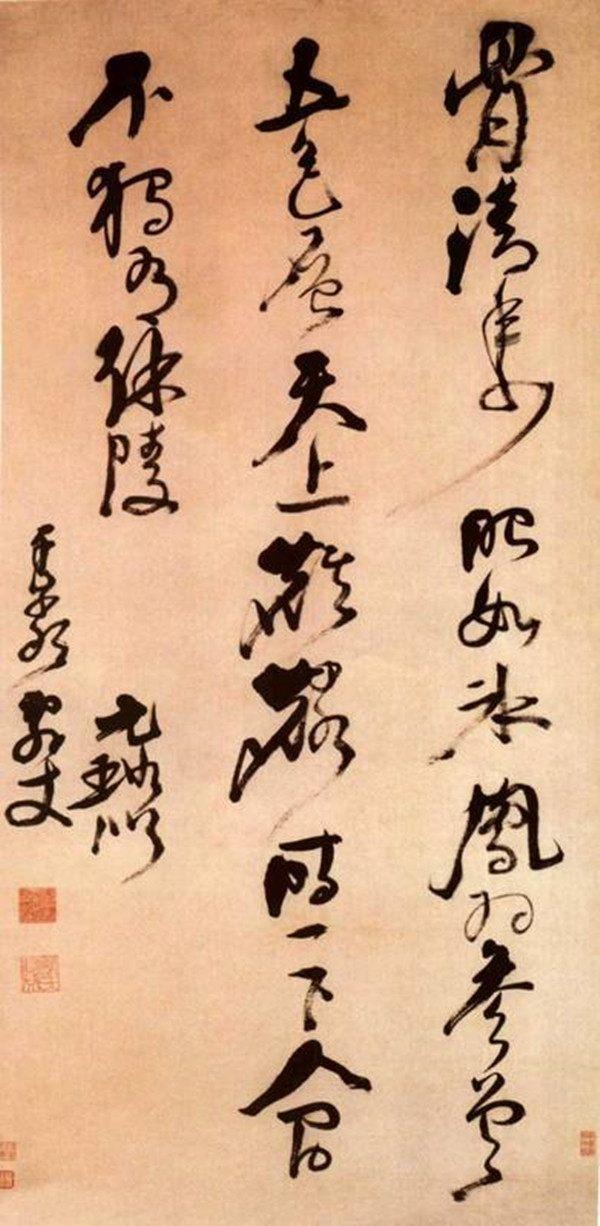 骨清年少眼如冰鳳羽參差
五色層天上麒麟時一下人間
不獨有徐陵
元璐似
家丈